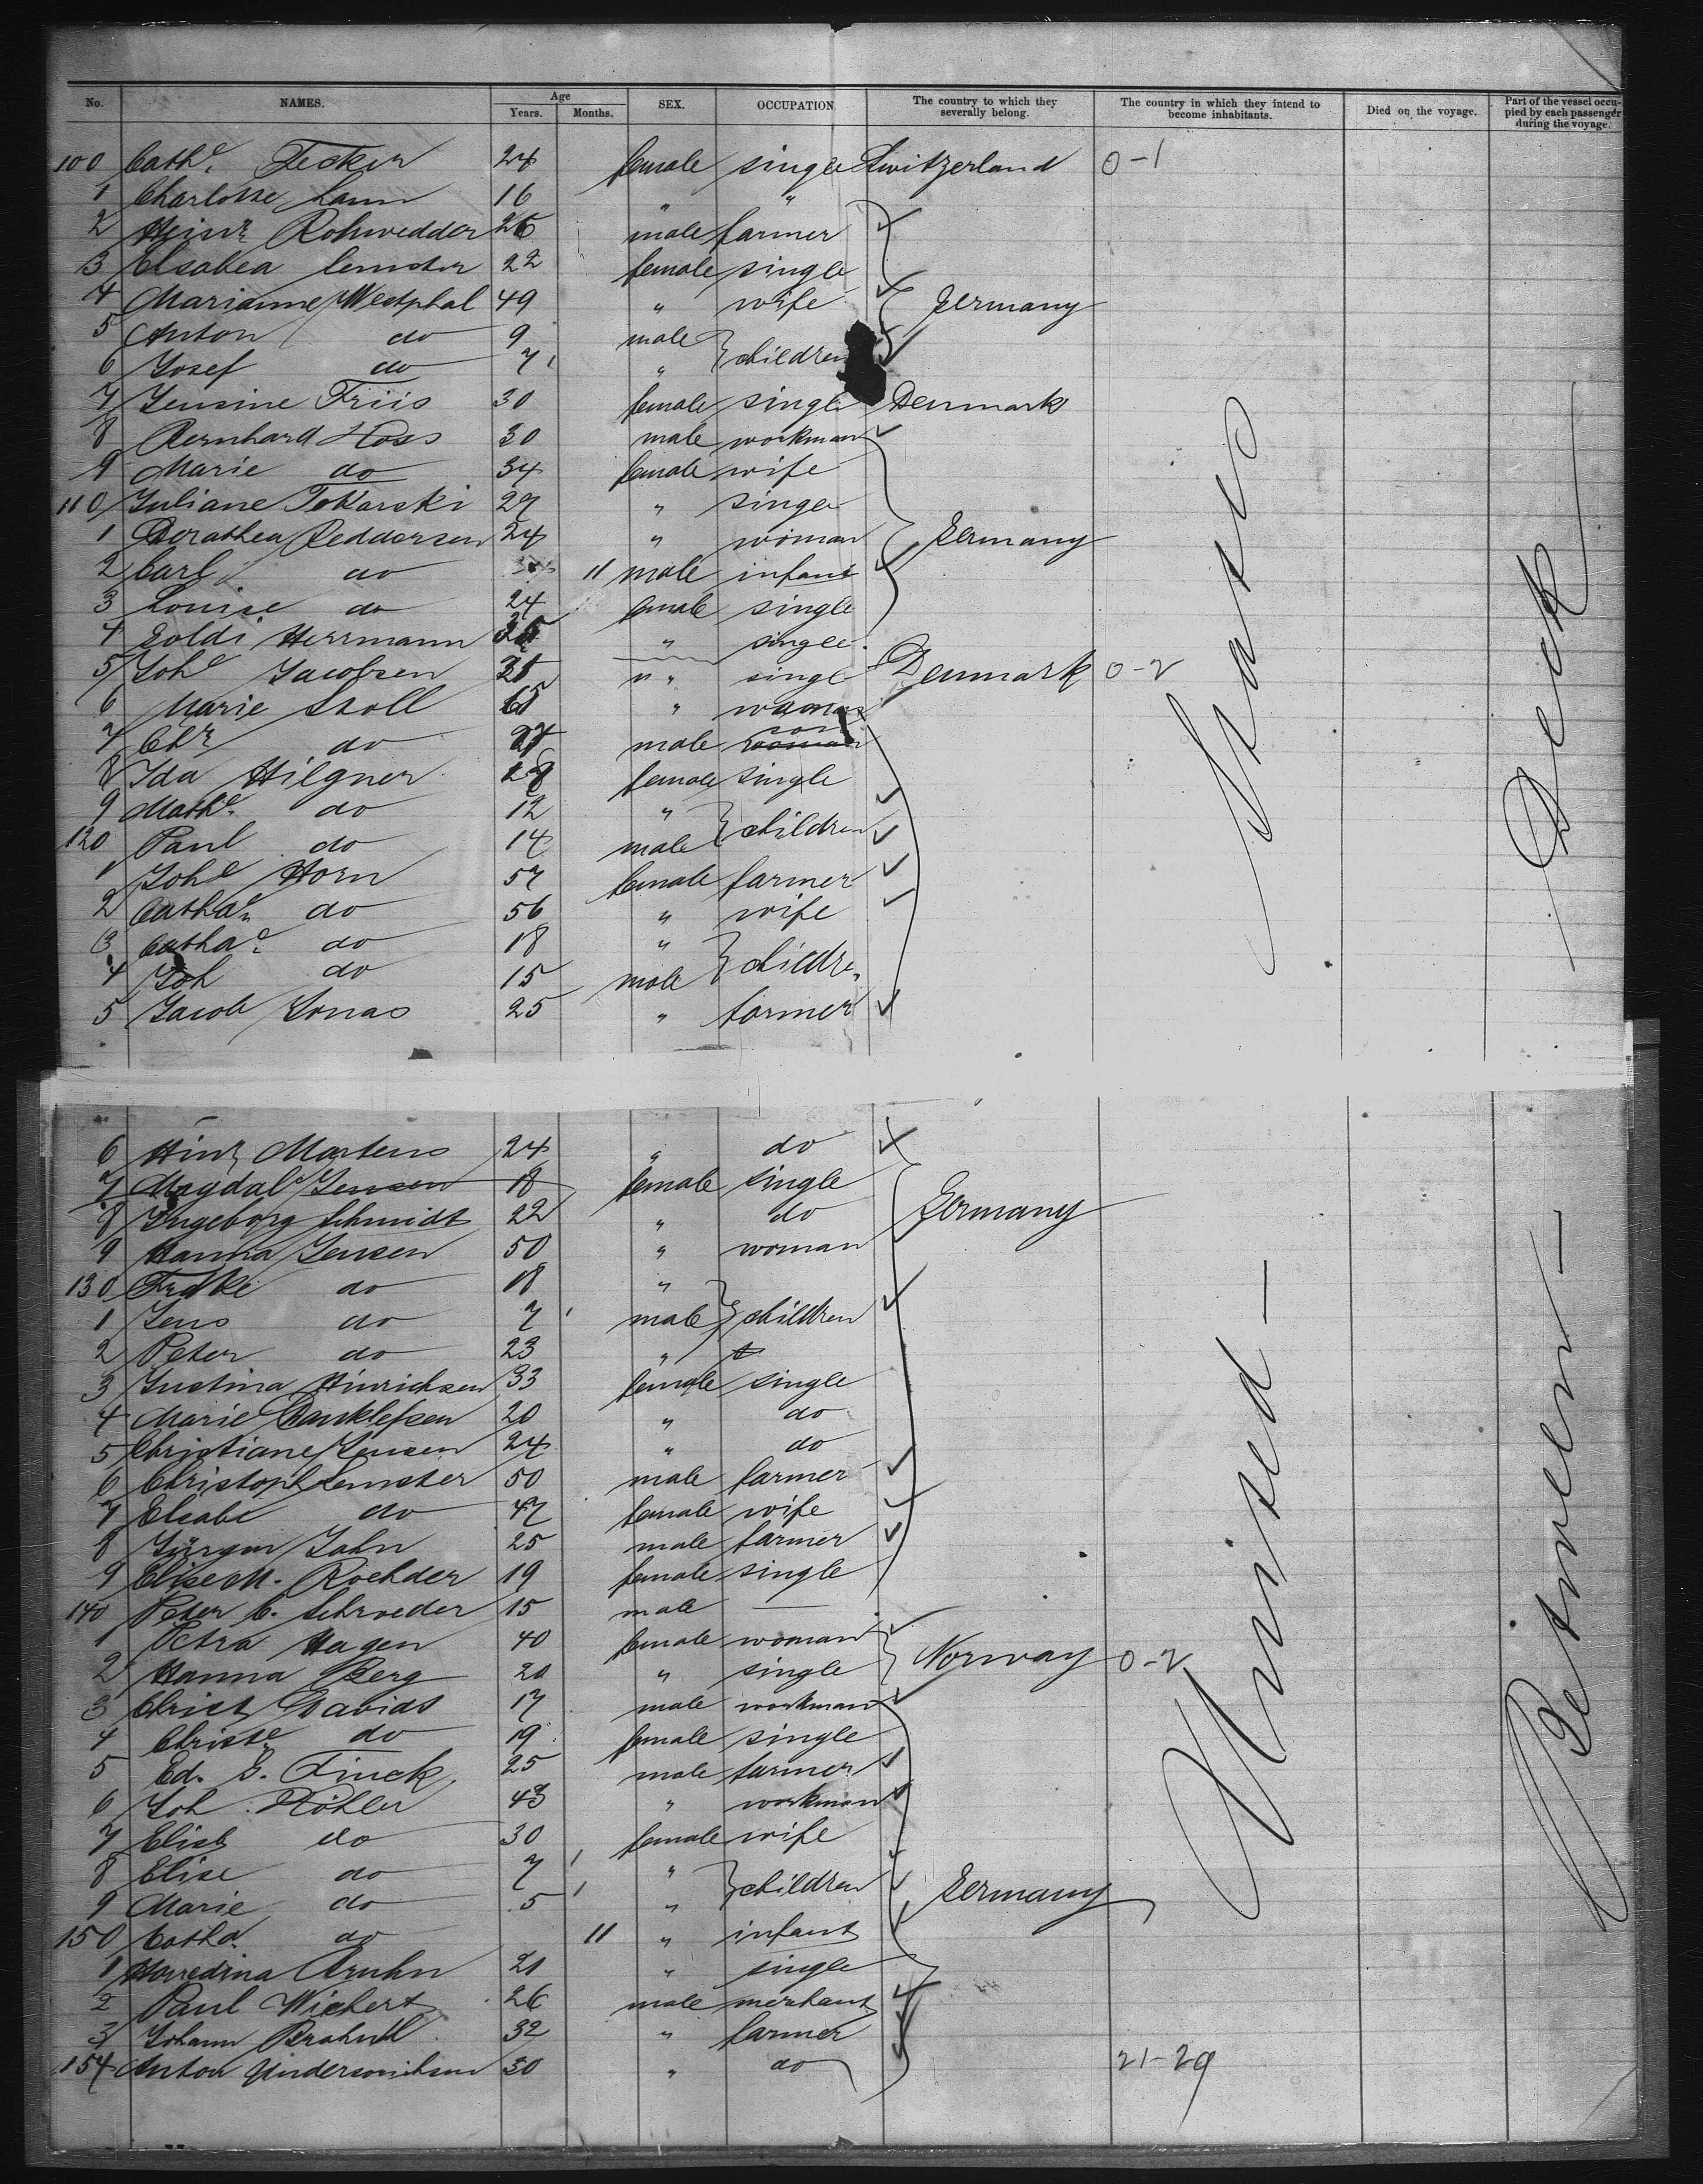 No. NAMES. Age Years. Months. SEX. OCCUPATION. The country to which they severally belong. The country in which they intend to become inhabitants. Died on the voyage. Part of the vessel occupied by each passenger during the voyage.
100 Cathe. Tecker 24 female single Switzerland 0-1
1 Charlotte 16 " "
2 Heinr. Rohwedder 26 male farmer
3 Elsabea Lemster 22 female single
4 Marianne Westphal 49 " wife Germany
5 Anton do 9 male
6 Josef do 7 " children
7 Jensine Friis 30 female single Denmark
8 Bernhard Hoss 30 male workman
9 Marie do 34 female wife
110 Juliane Tokarski 27 " single
1 Dorathea Peddersen 24 " woman Germany
2 Carl do 11 male infant
3 Louise do 24 female single
4 Goldi Herrmann " single
5 Johe Jacobsen " single Denmark 0-2
6 Marie Stoll 65 " woman
7 Chr. do 27 male son
8 Ida Hilgner 28 female single
9 Mathe. do 12 "
120 Paul do 14 male children
1 Johe Horn 57 female farmer
2 Cathae. do 56 " wife
3 Cathae. do 18 "
4 Joh do 15 male children
5 Jacob Jonas 25 " farmer
6 Hinr. Martens 24 " do
7 Magdale Jensen 18 female single
8 Ingeborg Schmidt 22 " do Germany
9 Hanna Jensen 50 " woman
130 do 18 "
1 Jens do 7 male children
2 Peter do 23 "
3 Justina Hinrichsen 33 female single
4 Marie Danklefsen 20 " do
5 Christiane Jensen 24 " do
6 Christoph Lemster 50 male farmer
7 Elsabe do 47 female wife
8 Jürgen Jahn 25 male farmer
9 Elise M. Roehder 19 female single
140 Peter C. Schroeder 15 male —
1 Petra Hagen 40 female woman
2 Hanna Berg 20 " single Norway 0-2
3 Christ. Davids 17 male workman
4 Christe do 19 female single
5 Ed. G. Finck 25 male farmer
6 Joh. Köhler 43 " workman
7 Elisb do 30 female wife
8 Elise do 7 "
9 Marie do 5 " children Germany
150 Catha. do 11 " infant
1 21 " single
2 Paul Wichert 26 male merchant
3 Johann 32 " farmer
154 Anton 30 " do 21-29
United — States
Between — Deck